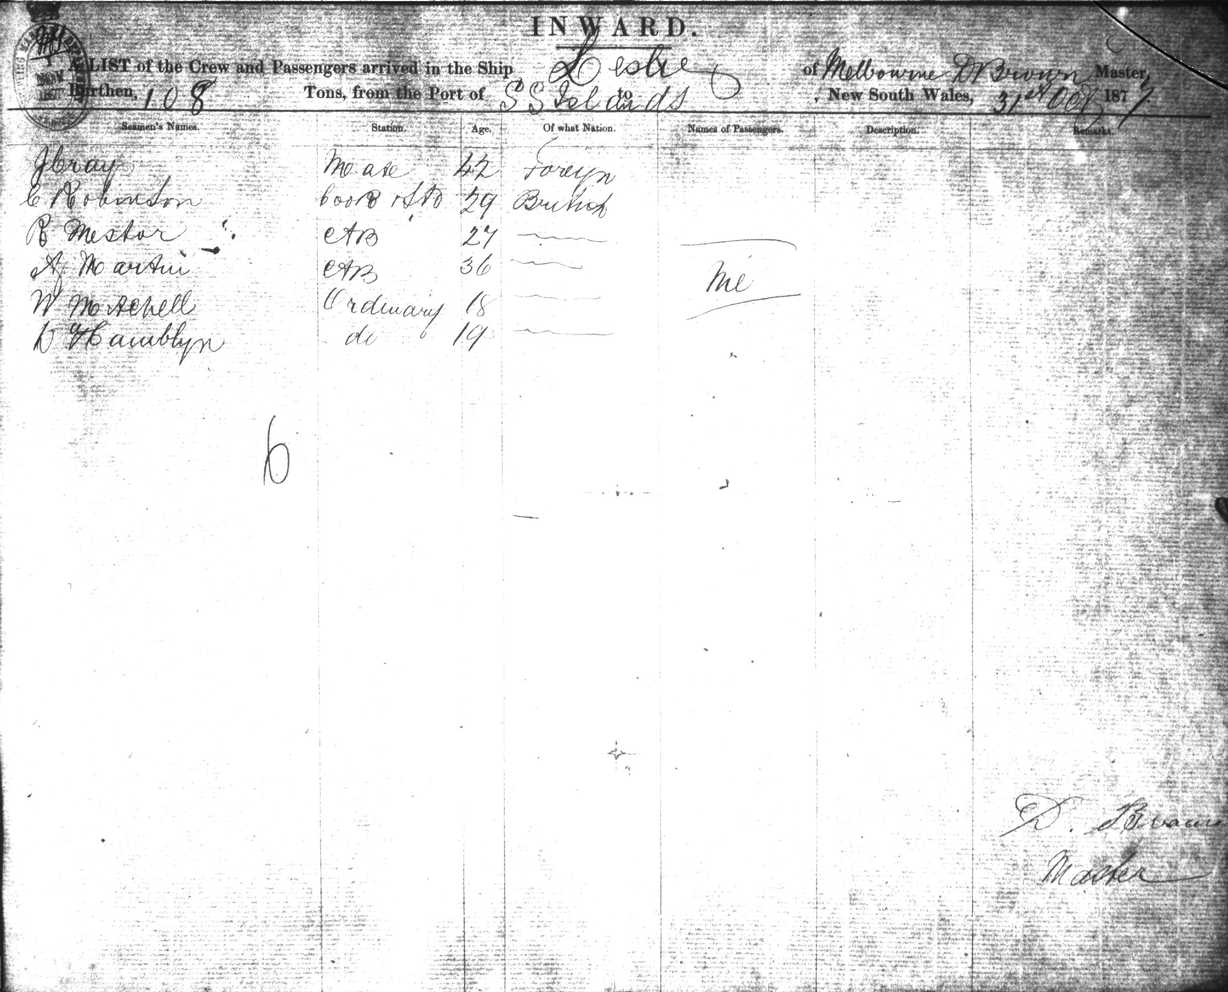 INWARD.
A LIST of the Crew and Passengers arrived in the Ship Leslie of Melbourne D Brown Master,
Burthen, 108 Tons, from the Port of S S Islands to , New South Wales, 31st Oct 1877
Seamen's Names. Station. Age. Of what Nation. Names of Passengers. Description. Remarks.
J Cray Mate 42 Foreign
C Robinson Cook & Std 29 British
R Mestor AB 27
A Martin AB 36
Nil
W Mitchell Ordinary 18
D Hamblyn do 19
6
D. Brown
Master